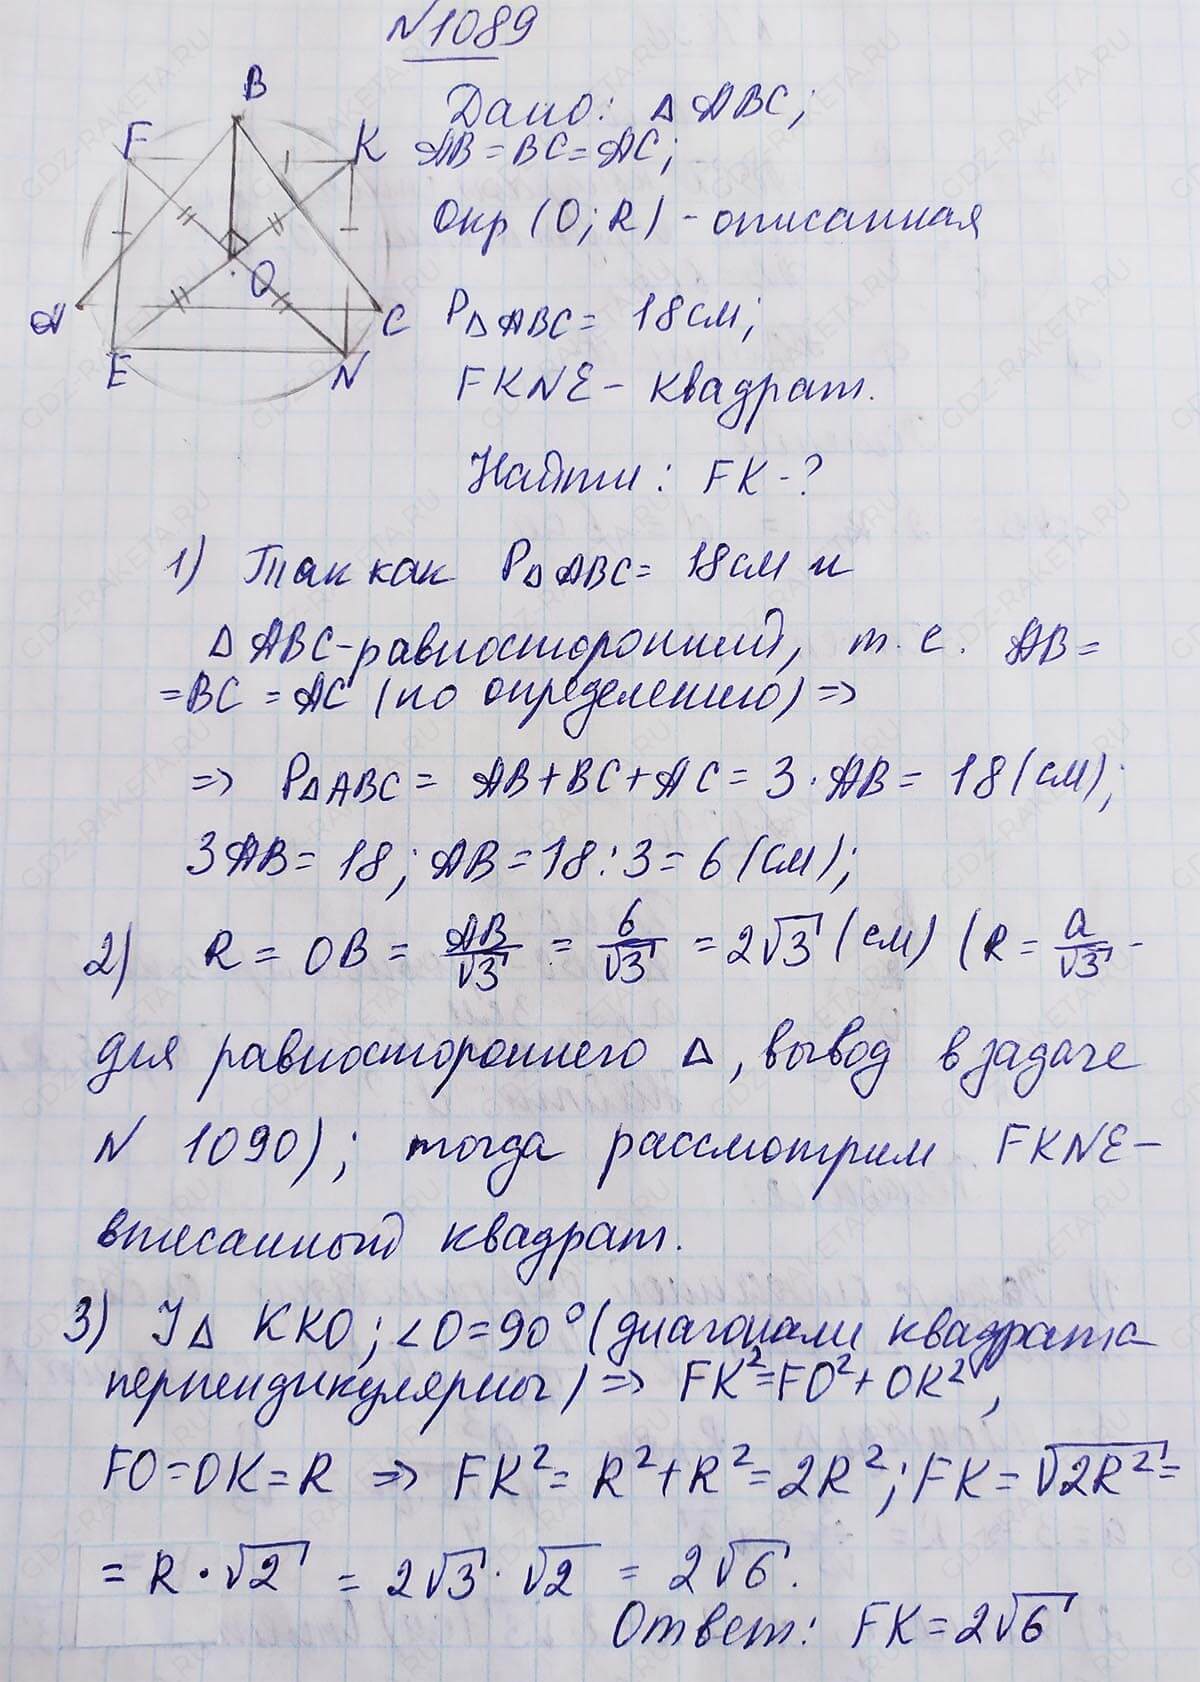 N1089
B
F
K
O
A
C
E
N
Дано: △ ABC;
AB = BC = AC;
Окр (O; R) - описанная
P△ABC = 18 см;
FKNE - квадрат.
Найти: FK - ?
1) Так как P△ABC = 18 см и
△ ABC - равносторонний, т. е. AB =
= BC = AC (по определению) =>
=> P△ABC = AB + BC + AC = 3 · AB = 18 (см);
3AB = 18; AB = 18 : 3 = 6 (см);
2) R = OB = AB/√3 = 6/√3 = 2√3 (см) (R = a/√3 -
для равностороннего △, вывод в задаче
N 1090); тогда рассмотрим FKNE -
вписанный квадрат.
3) У△ KKO; ∠O = 90° (диагонали квадрата
перпендикулярны) => FK² = FO² + OK²,
FO = OK = R => FK² = R² + R² = 2R²; FK = √2R² =
= R · √2 = 2√3 · √2 = 2√6.
Ответ: FK = 2√6